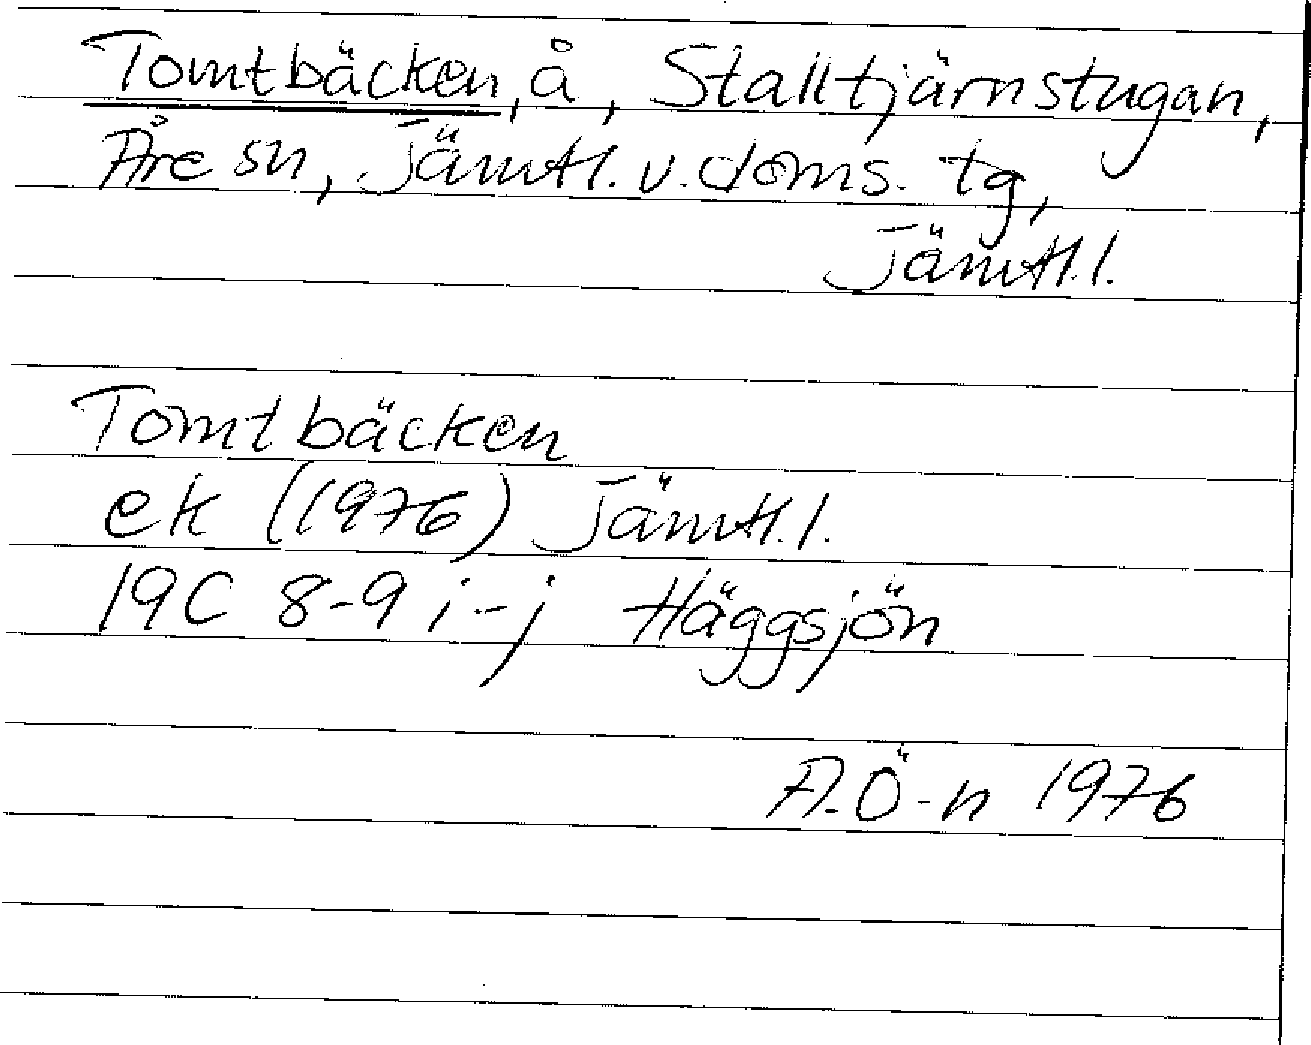 Tomtbäcken, å, Stalltjärnstugan,
Åre sn, Jämtl. v. doms. tg,
Jämtl.l.
Tomtbäcken
ek (1976) Jämtl.l.
19C 8-9 i-j Häggsjön
A.Ö-n 1976